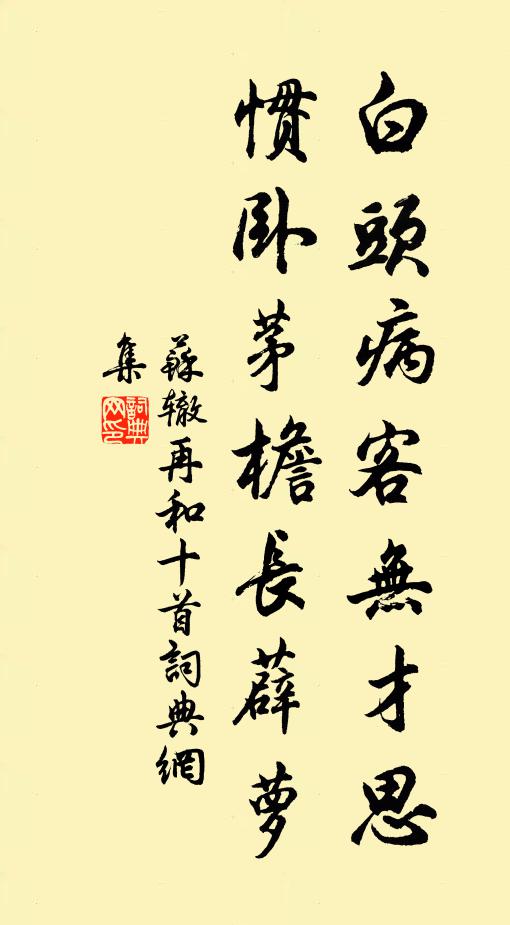 白頭病客無才思
慣卧茅檐長薜萝
蘇辙再和十首詞典網
集
詞典
网印